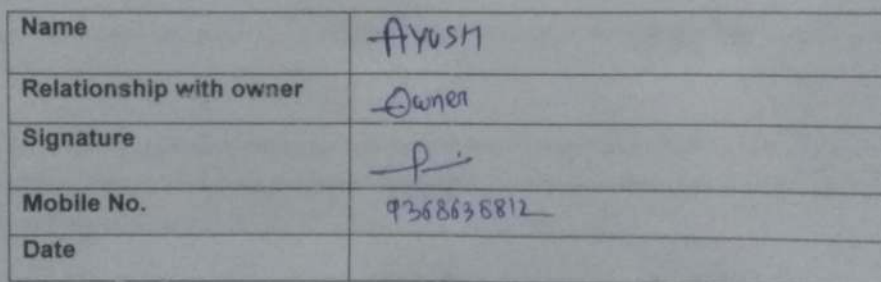 Name AYUSH
Relationship with owner Owner
Signature
Mobile No. 9368636812
Date